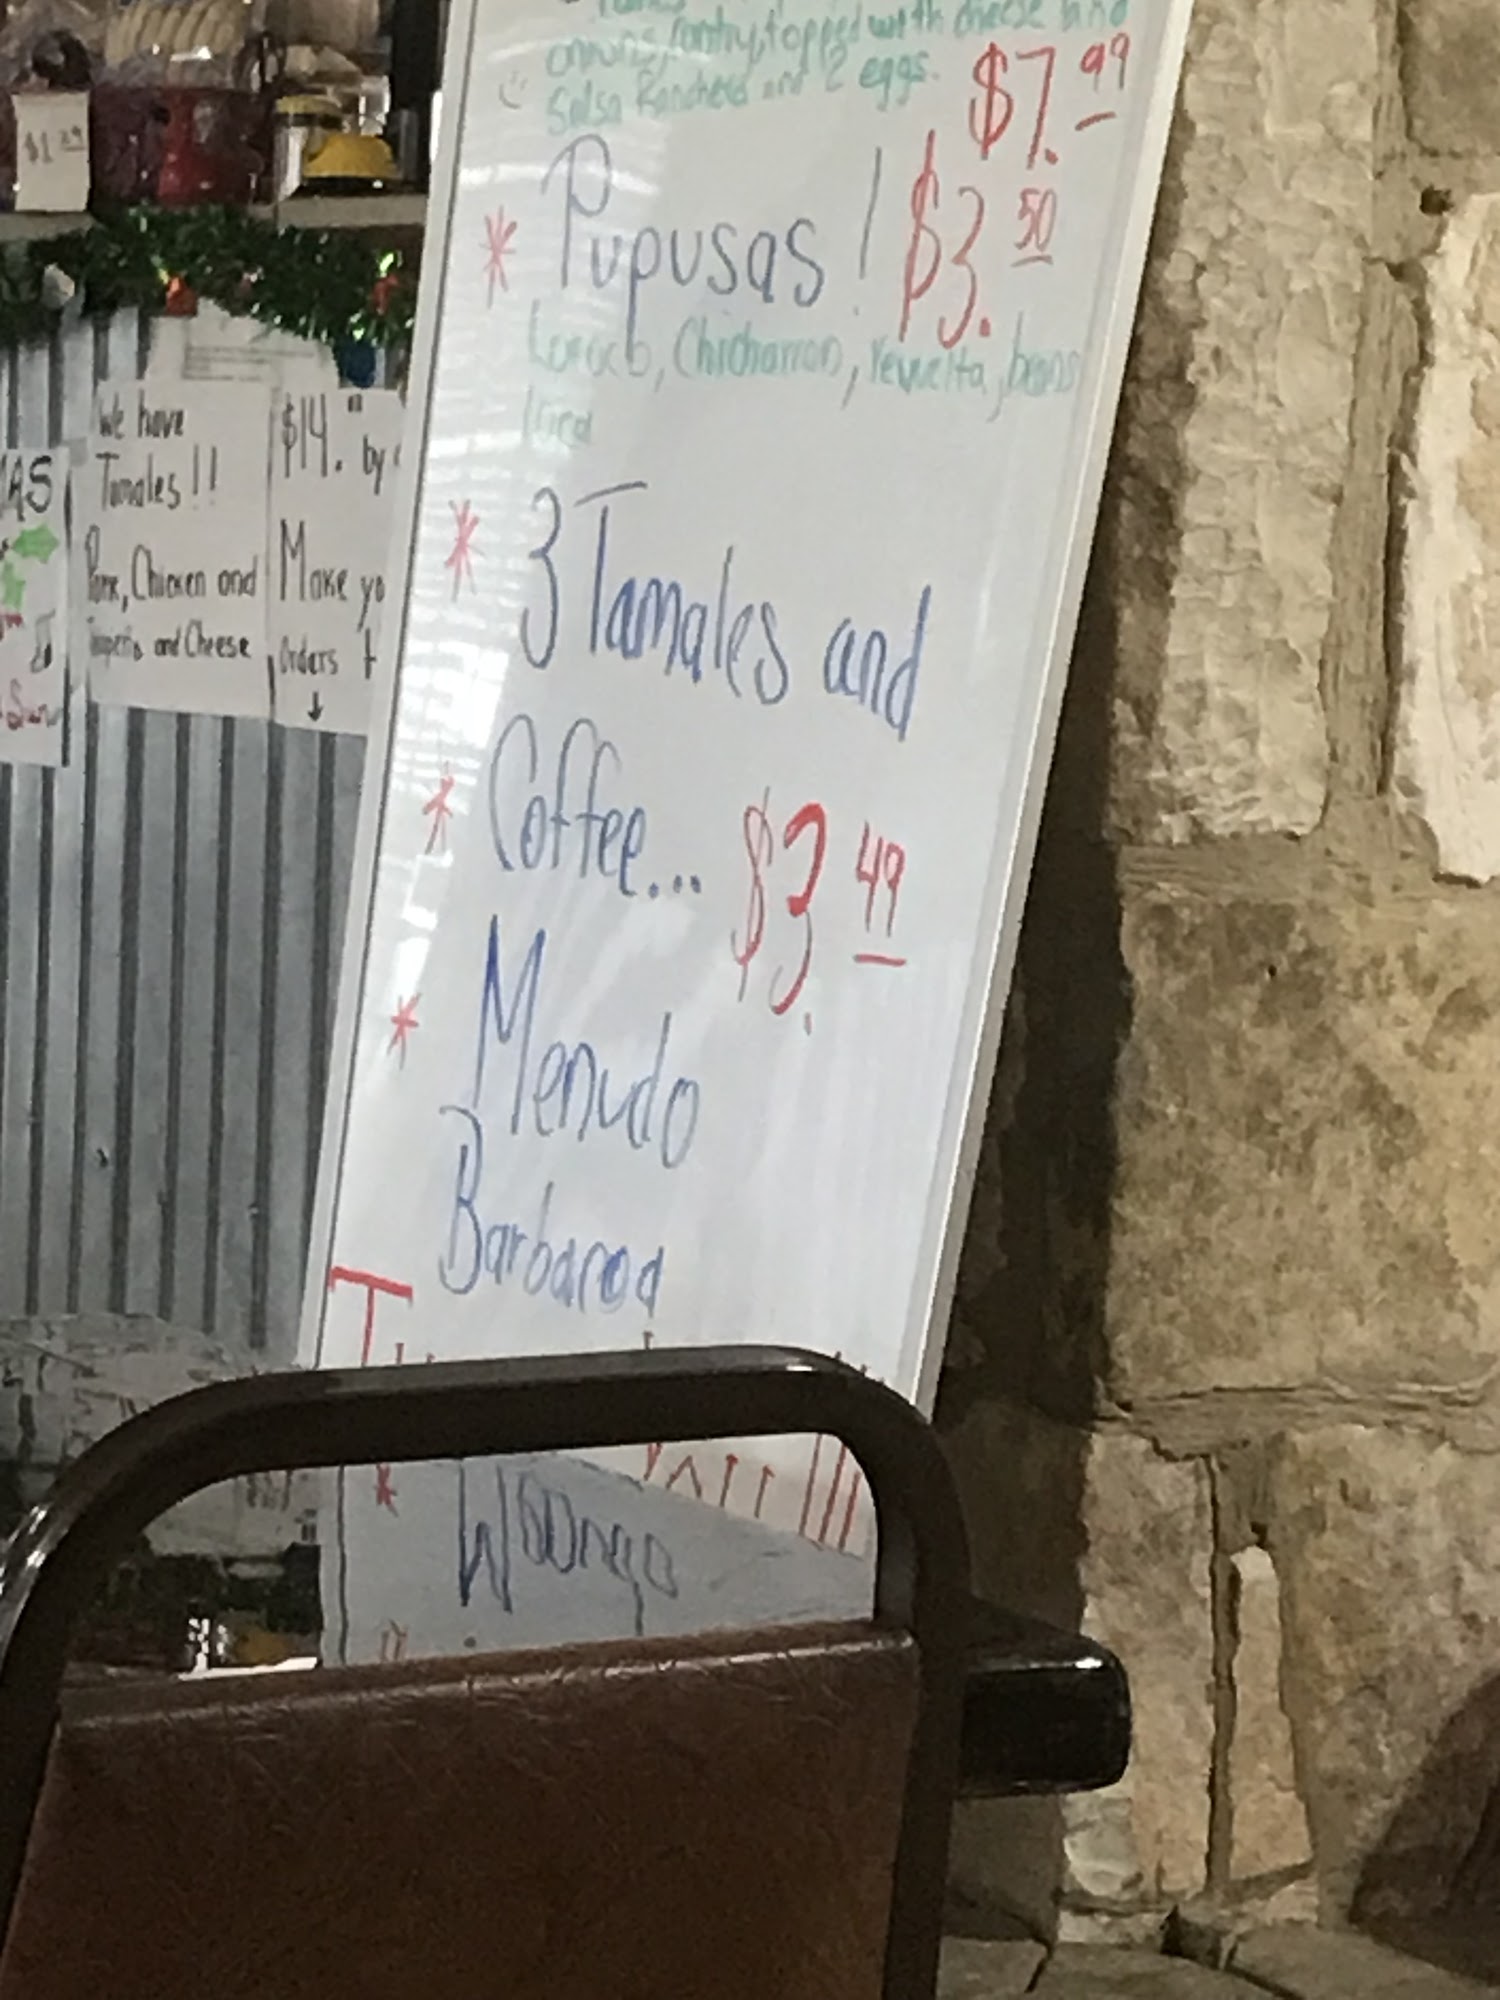 topped with cheese and
Salsa Ranchera and 2 eggs.
$7.99
* Pupusas! $3.50
Loroco, Chicharron, revuelta, beans
* 3 Tamales and
* Coffee... $3.49
* Menudo
Barbacoa
*
$1
We have
Tamales!!
Pork, Chicken and
Jalapeño and Cheese
$14. by
Make yo
Orders
MAS